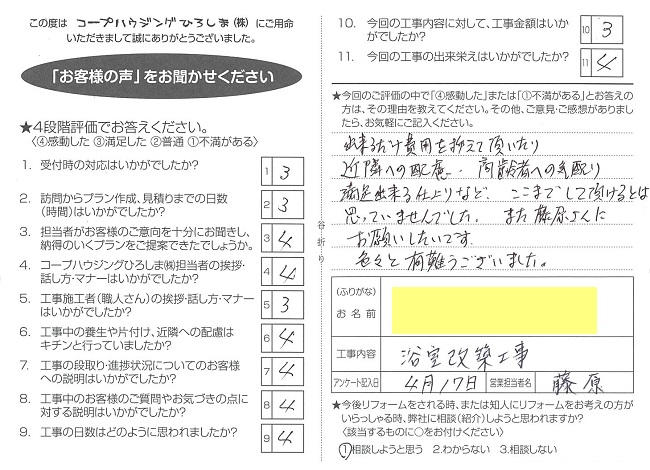 この度は コープハウジングひろしま(株) にご用命
いただきまして誠にありがとうございました。
「お客様の声」をお聞かせください
★4段階評価でお答えください。
〈④感動した ③満足した ②普通 ①不満がある〉
1. 受付時の対応はいかがでしたか?
1 3
2. 訪問からプラン作成、見積りまでの日数
(時間)はいかがでしたか?
2 3
3. 担当者がお客様のご意向を十分にお聞きし、
納得のいくプランをご提案できたでしょうか。
3 4
4. コープハウジングひろしま㈱担当者の挨拶・
話し方・マナーはいかがでしたか?
4 4
5. 工事施工者(職人さん)の挨拶・話し方・マナー
はいかがでしたか?
5 3
6. 工事中の養生や片付け、近隣への配慮は
キチンと行っていましたか?
6 4
7. 工事の段取り・進捗状況についてのお客様
への説明はいかがでしたか?
7 4
8. 工事中のお客様のご質問やお気づきの点に
対する説明はいかがでしたか?
8 4
9. 工事の日数はどのように思われましたか?
9 4
谷折り
10. 今回の工事内容に対して、工事金額はいか
がでしたか?
10 3
11. 今回の工事の出来栄えはいかがでしたか?
11 4
★今回のご評価の中で「④感動した」または「①不満がある」とお答え
の方は、その理由を教えてください。その他、ご意見・ご感想がありまし
たら、お気軽にご記入ください。
出来るだけ費用を抑えて頂いたり
近隣への配慮・高齢者への気配り
満足出来る仕上りなど、ここまでして頂けるとは
思っていませんでした。また藤原さんに
お願いしたいです。
色々と有難うございました。
(ふりがな)
お名前
工事内容 浴室改築工事
アンケート記入日 4月17日 営業担当者名 藤原
★今後リフォームをされる時、または知人にリフォームをお考えの方が
いらっしゃる時、弊社に相談(紹介)しようと思われますか?
〈該当するものに○をお付けください〉
①相談しようと思う 2.わからない 3.相談しない